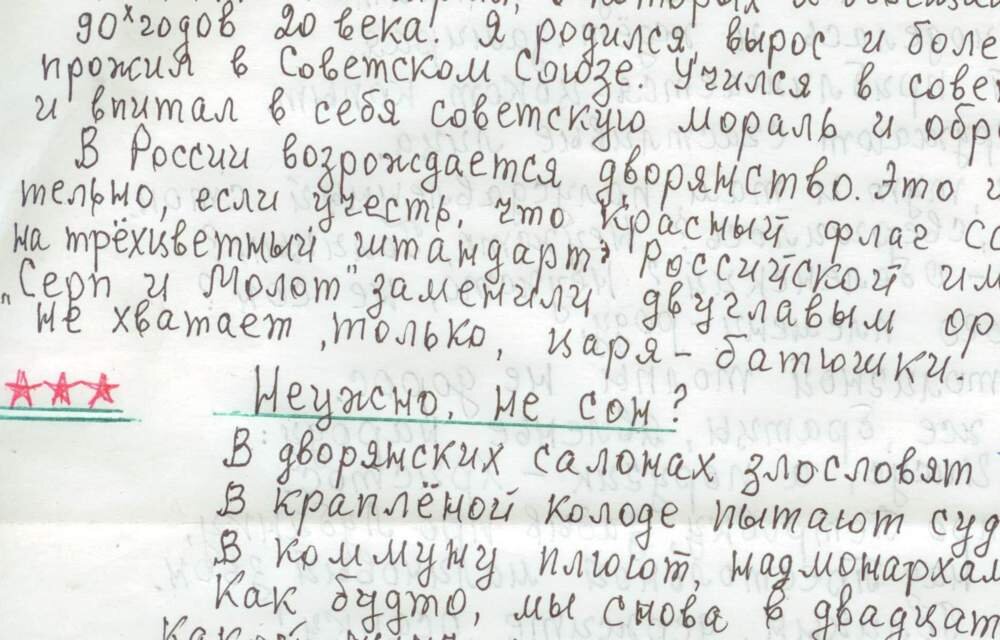 90х годов 20 века. Я родился, вырос и боле
прожил в Советском Союзе. Учился в совет
и впитал в себя советскую мораль и обр
В России возрождается дворянство. Это и
тельно, если учесть, что Красный флаг Со
на трёхцветный штандарт Российской им
„Серп и Молот" заменили двуглавым ор
не хватает, только, царя-батюшки.
Неужно, не сон?
В дворянских салонах злословят
В краплёной колоде пытают суд
В коммуну плюют, над монархам
Как будто, мы снова в двадцат